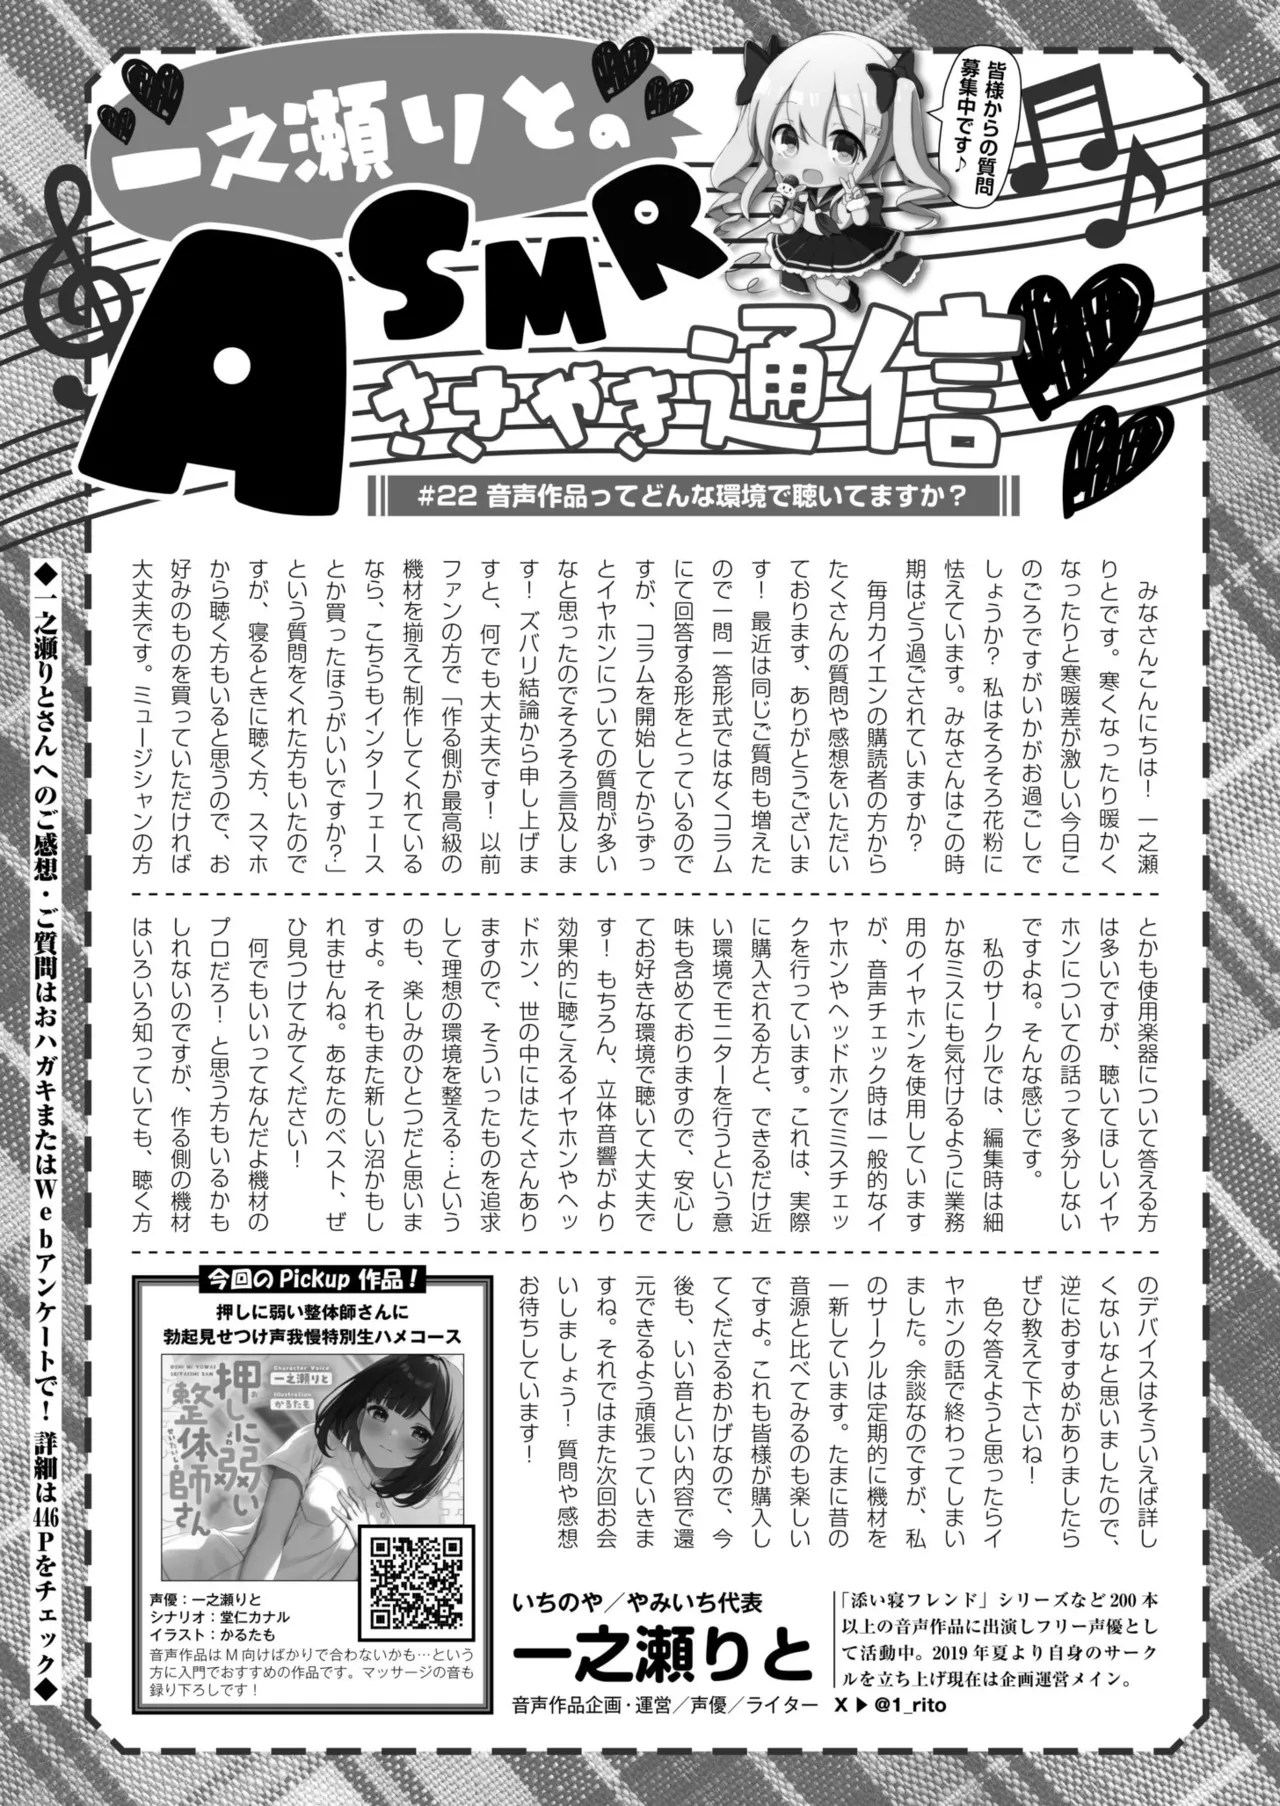 一之瀬りとの
ASMR
ささやき通信
皆様からの質問
募集中です♪
#22 音声作品ってどんな環境で聴いてますか?
みなさんこんにちは! 一之瀬
りとです。寒くなったり暖かく
なったりと寒暖差が激しい今日こ
のごろですがいかがお過ごしで
しょうか? 私はそろそろ花粉に
怯えています。みなさんはこの時
期はどう過ごされていますか?
毎月カイエンの購読者の方から
たくさんの質問や感想をいただい
ております、ありがとうございま
す! 最近は同じご質問も増えた
ので一問一答形式ではなくコラム
にて回答する形をとっているので
すが、コラムを開始してからずっ
とイヤホンについての質問が多い
なと思ったのでそろそろ言及しま
す! ズバリ結論から申し上げま
すと、何でも大丈夫です! 以前
ファンの方で「作る側が最高級の
機材を揃えて制作してくれている
なら、こちらもインターフェース
とか買ったほうがいいですか?」
という質問をくれた方もいたので
すが、寝るときに聴く方、スマホ
から聴く方もいると思うので、お
好みのものを買っていただければ
大丈夫です。ミュージシャンの方
とかも使用楽器について答える方
は多いですが、聴いてほしいイヤ
ホンについての話って多分しない
ですよね。そんな感じです。
私のサークルでは、編集時は細
かなミスにも気付けるように業務
用のイヤホンを使用しています
が、音声チェック時は一般的なイ
ヤホンやヘッドホンでミスチェッ
クを行っています。これは、実際
に購入される方と、できるだけ近
い環境でモニターを行うという意
味も含めておりますので、安心し
てお好きな環境で聴いて大丈夫で
す! もちろん、立体音響がより
効果的に聴こえるイヤホンやヘッ
ドホン、世の中にはたくさんあり
ますので、そういったものを追求
して理想の環境を整える…という
のも、楽しみのひとつだと思いま
すよ。それもまた新しい沼かもし
れませんね。あなたのベスト、ぜ
ひ見つけてみてください!
何でもいいってなんだよ機材の
プロだろ! と思う方もいるかも
しれないのですが、作る側の機材
はいろいろ知っていても、聴く方
のデバイスはそういえば詳し
くないなと思いましたので、
逆におすすめがありましたら
ぜひ教えて下さいね!
色々答えようと思ったらイ
ヤホンの話で終わってしまい
ました。余談なのですが、私
のサークルは定期的に機材を
一新しています。たまに昔の
音源と比べてみるのも楽しい
ですよ。これも皆様が購入し
てくださるおかげなので、今
後も、いい音といい内容で還
元できるよう頑張っていきま
すね。それではまた次回お会
いしましょう! 質問や感想
お待ちしています!
今回のPickup 作品!
押しに弱い整体師さんに
勃起見せつけ声我慢特別生ハメコース
OSHI NI YOWAI
SEITAISHI SAN
押しに弱い
整体師さん
せいたいし
Character Voice
一之瀬りと
Illustration
かるたも
声優:一之瀬りと
シナリオ:堂仁カナル
イラスト:かるたも
音声作品はM向けばかりで合わないかも…という
方に入門でおすすめの作品です。マッサージの音も
録り下ろしです!
いちのや/やみいち代表
一之瀬りと
音声作品企画・運営/声優/ライター
「添い寝フレンド」シリーズなど200本
以上の音声作品に出演しフリー声優とし
て活動中。2019年夏より自身のサーク
ルを立ち上げ現在は企画運営メイン。
X▶@1_rito
◆一之瀬りとさんへのご感想・ご質問はおハガキまたはWebアンケートで! 詳細は446Pをチェック◆